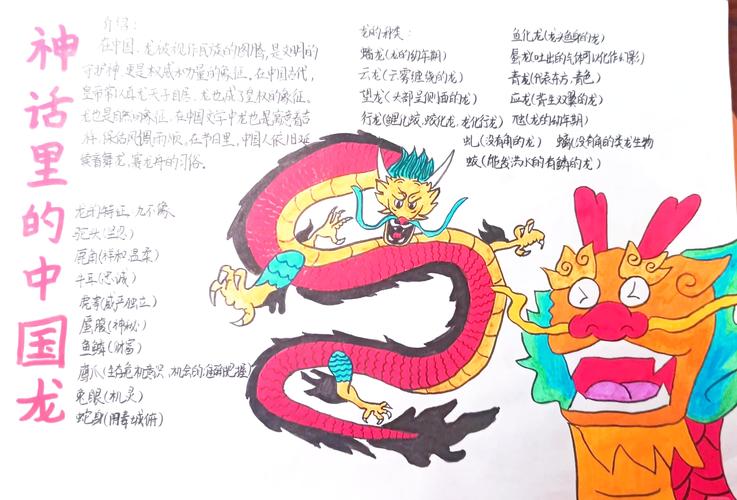 神话里的中国龙
介绍:
在中国,龙被视作民族的图腾,是文明的
守护神,更是权威和力量的象征。在中国古代,
皇帝常以真龙天子自居,龙也成了皇权的象征。
龙也是自然的象征。在中国文字中龙也是寓意着吉
祥,保佑风调雨顺,在节日里,中国人依旧延
续着舞龙,赛龙舟的习俗。
龙的特征 九不像
驼头(坚忍)
鹿角(祥和温柔)
牛耳(忠诚)
虎掌(威严独立)
蜃腹(神秘)
鱼鳞(财富)
鹰爪(生存危机意识、机会的把握)
兔眼(机灵)
蛇身(能屈能伸)
龙的种类:
蟠龙(龙的幼年期)
云龙(云雾缠绕的龙)
望龙(头部呈侧面的龙)
行龙(鲤化蛟,蛟化龙,龙化行龙)
虬(没有角的龙)
蛟(能发洪水的有鳞的龙)
鱼化龙(龙头鱼身的龙)
蜃龙(吐出的气体可以化作幻影)
青龙(代表东方,青色)
应龙(背生双翼的龙)
虺(龙的幼年期)
螭(没有角的类龙生物